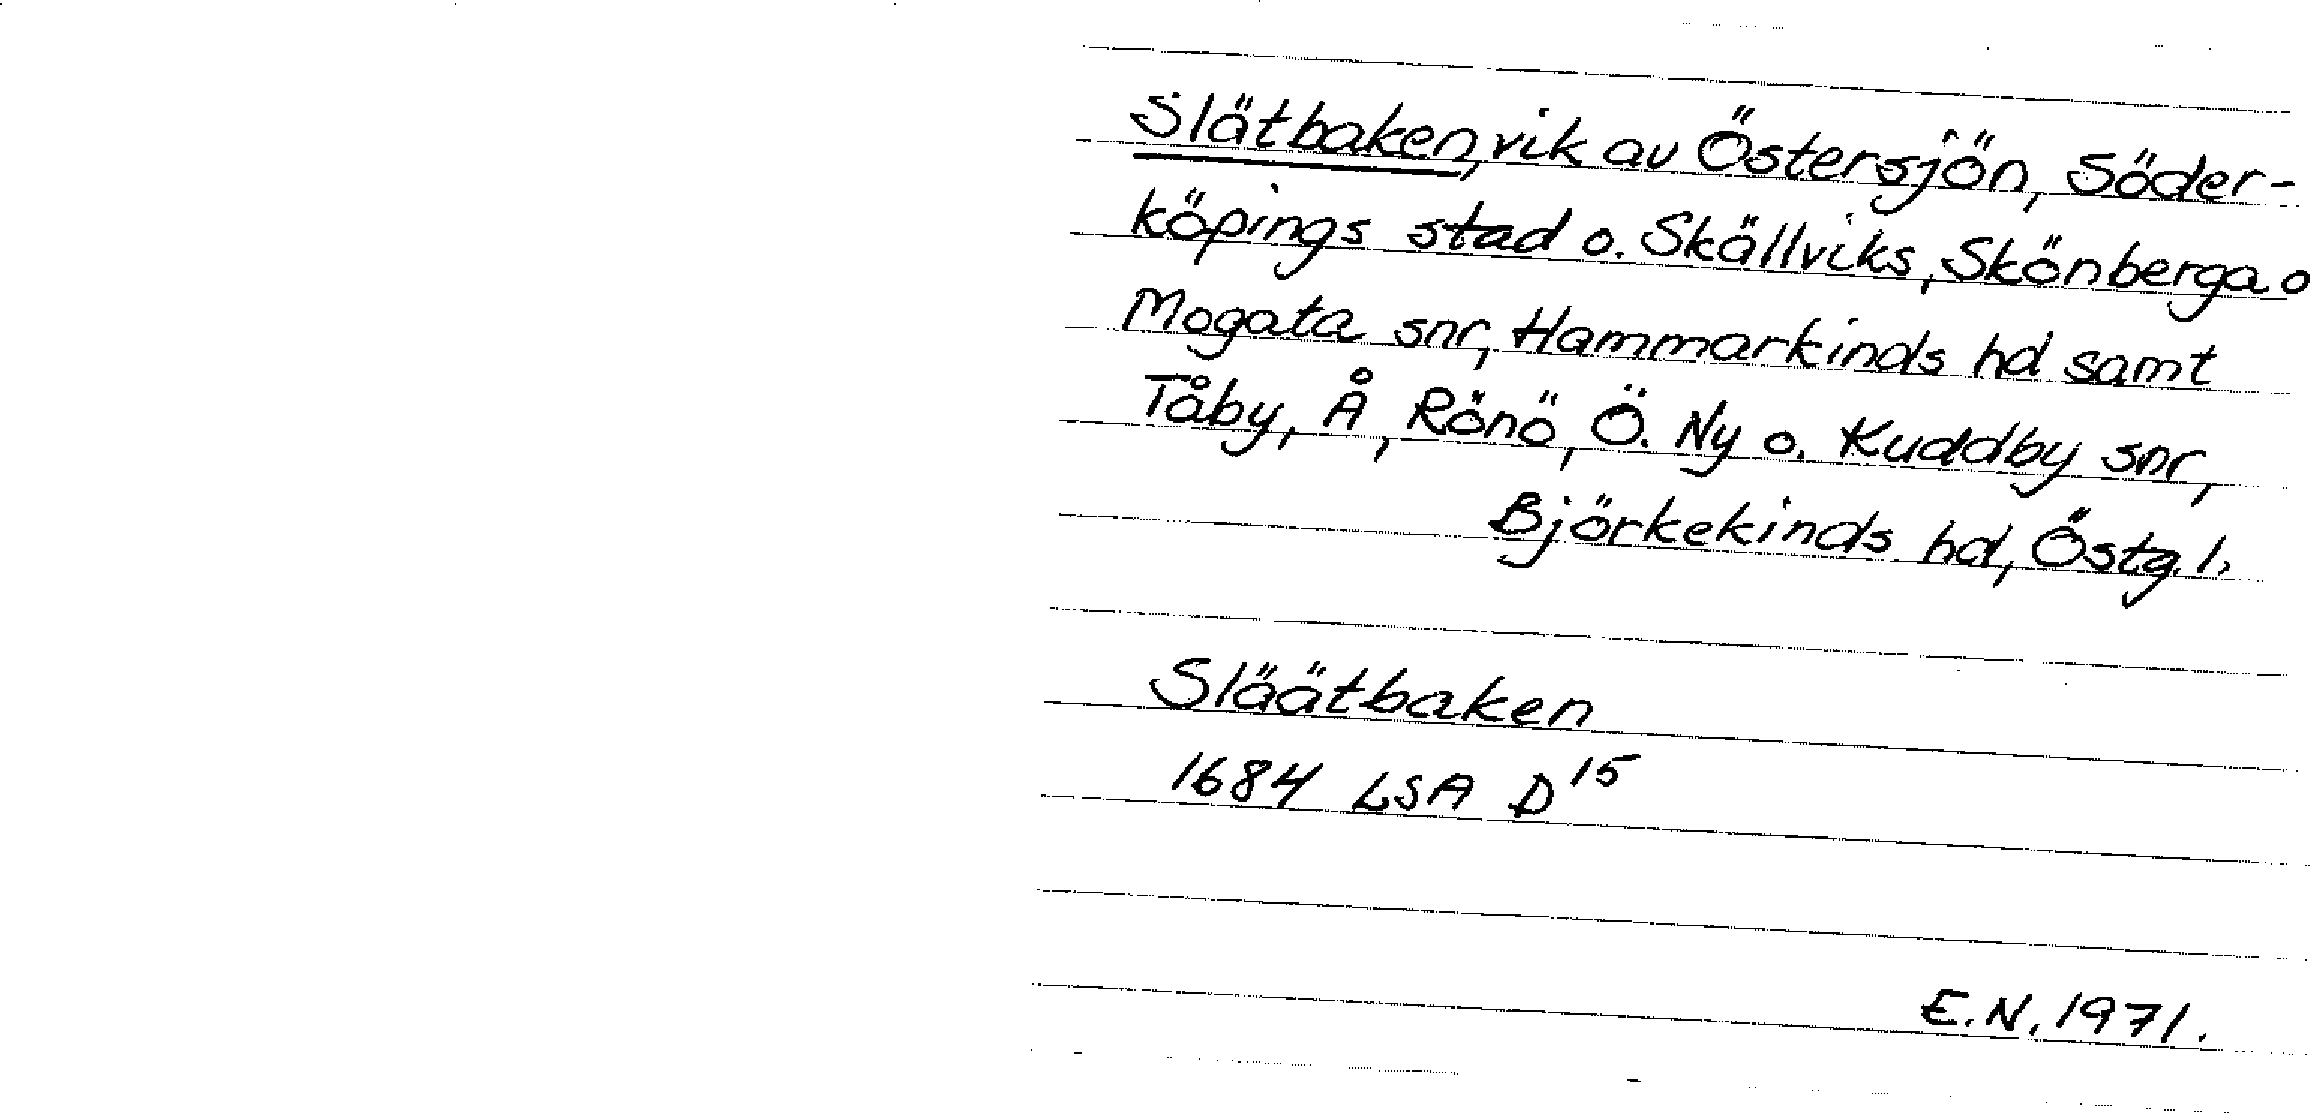 Slätbaken, vik av Östersjön, Söder-
köpings stad o. Skällviks, Skönberga o
Mogata snr, Hammarkinds hd samt
Tåby, Å, Rönö, Ö. Ny o. Kuddby snr,
Björkekinds hd, Östg. l.
Släätbaken
1684 LSA D15
E.N. 1971.